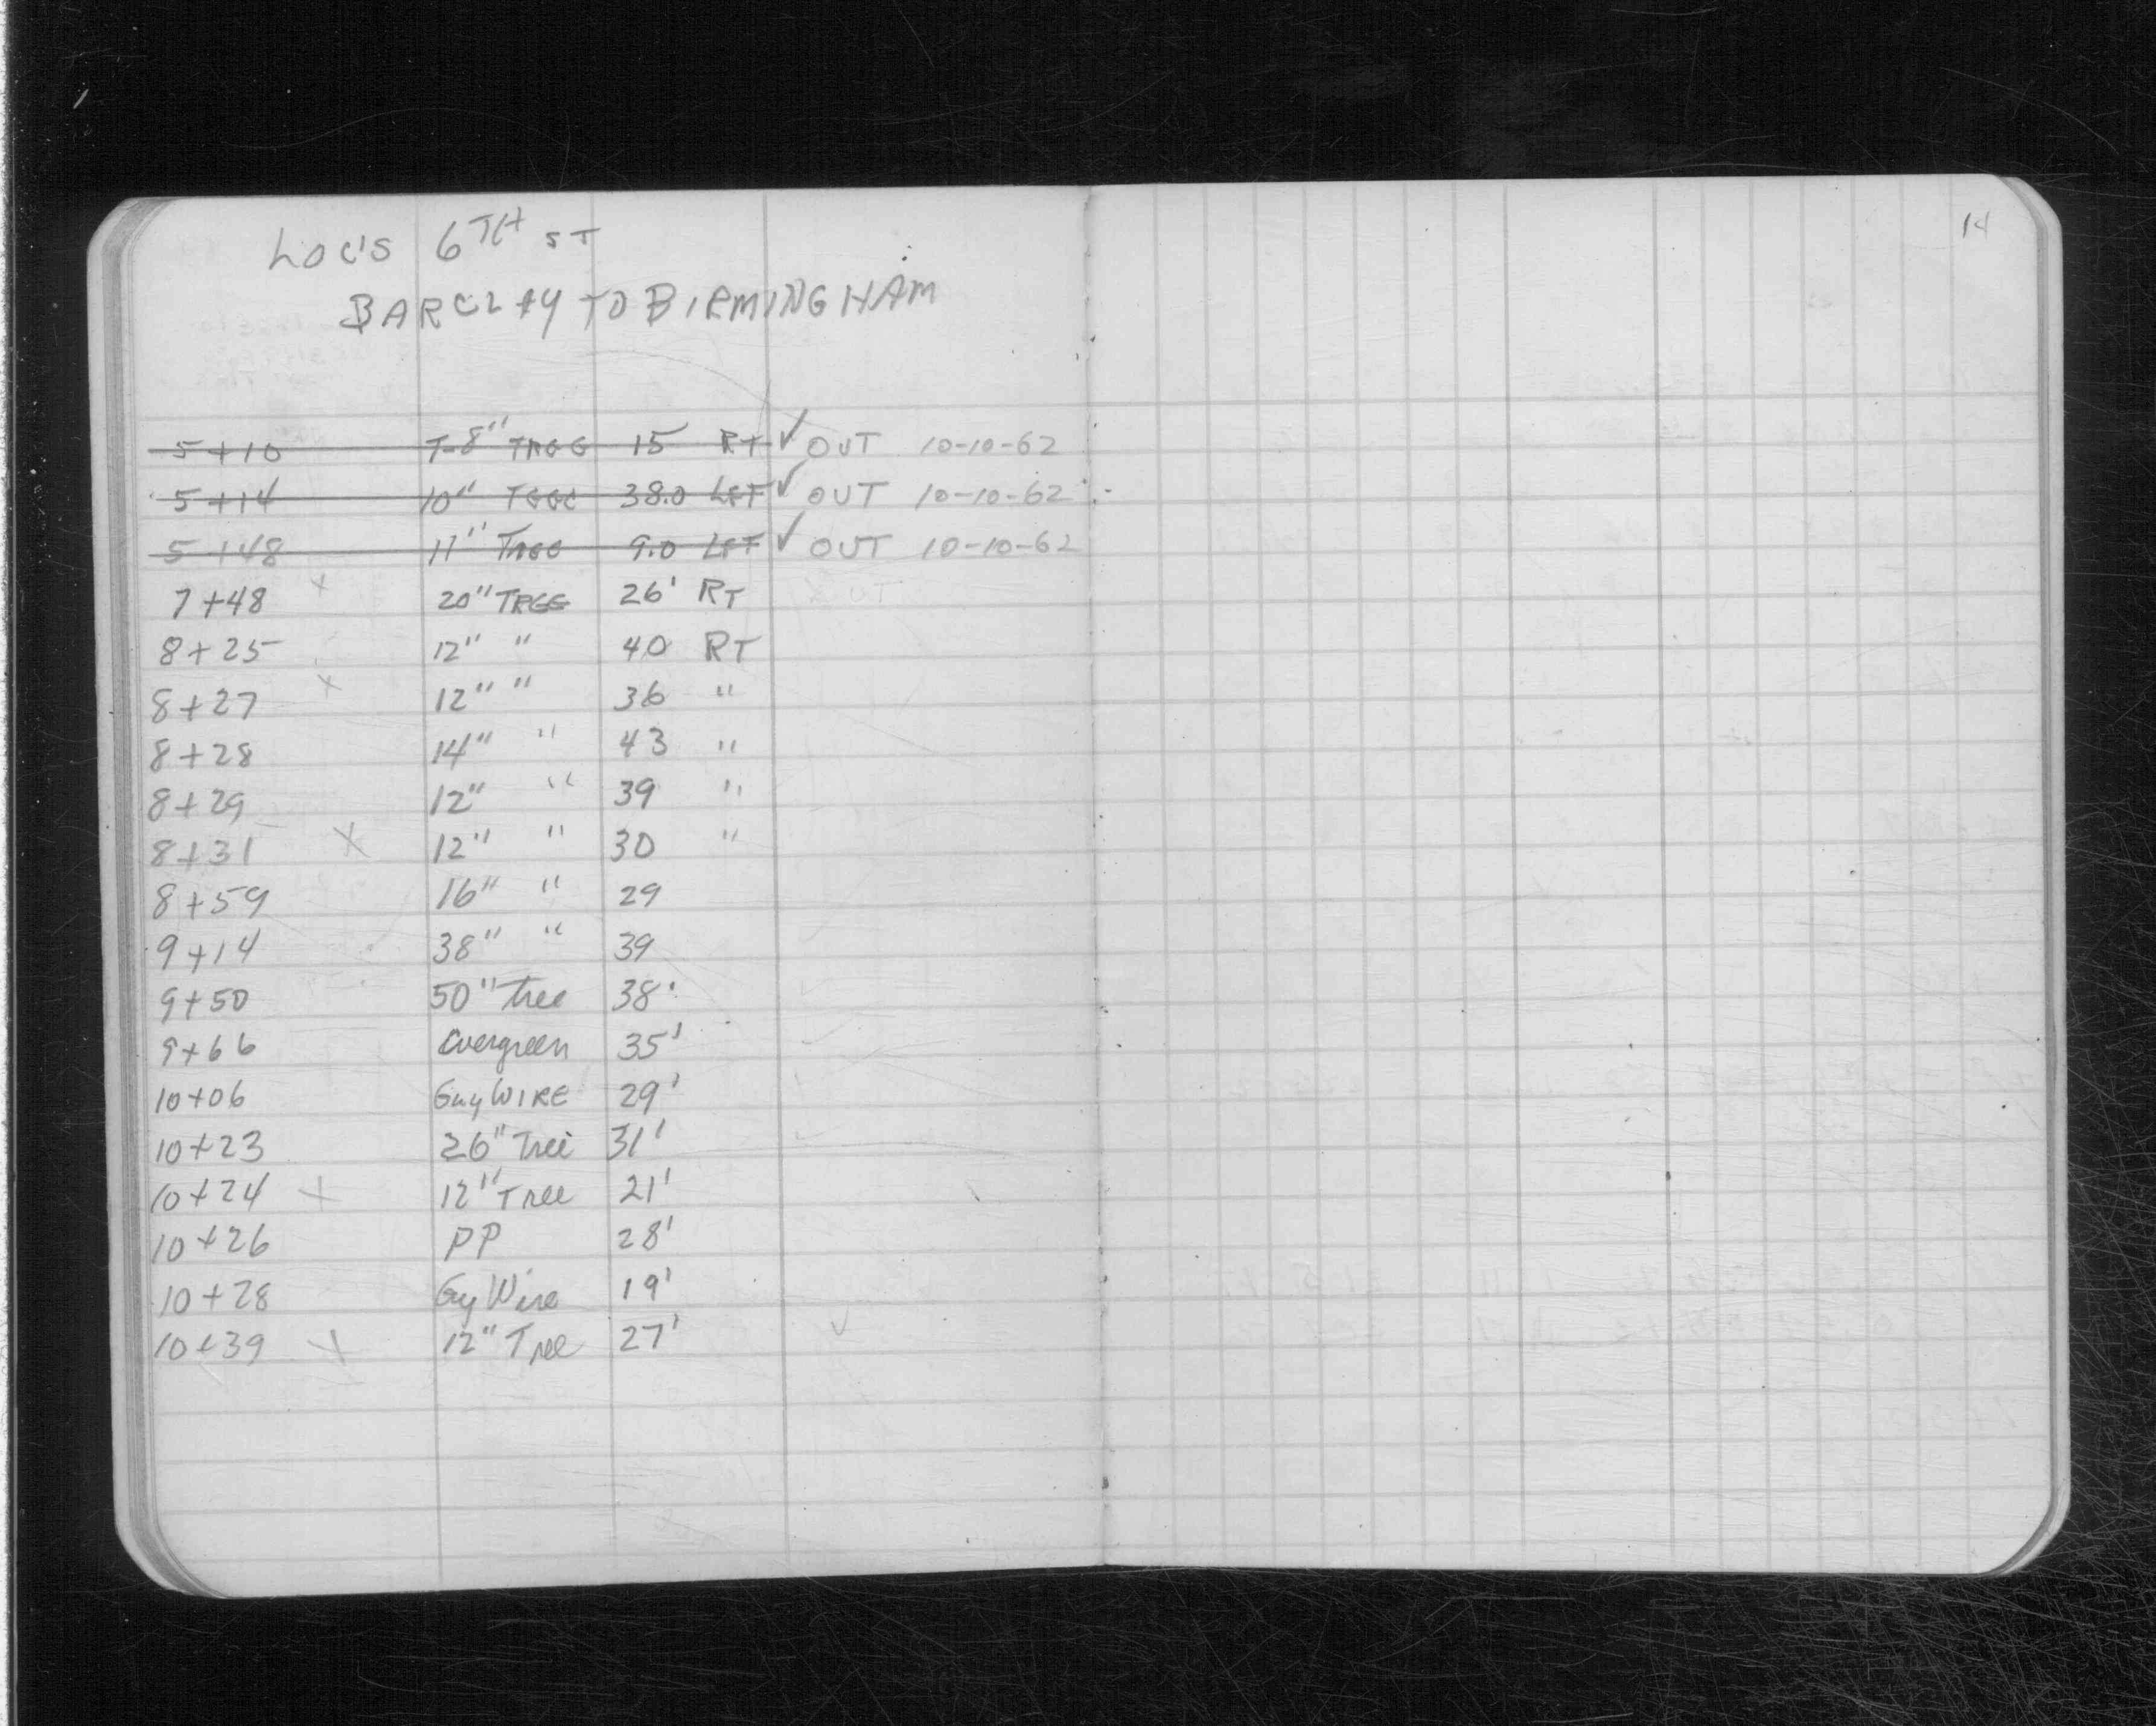 LOC'S 6TH ST
BARCLAY TO BIRMINGHAM
14
5+10 T-8" TREE 15 RT ✓ OUT 10-10-62
5+14 10" TREE 38.0 LEF ✓ OUT 10-10-62
5+48 11" TREE 9.0 LEF ✓ OUT 10-10-62
7+48 x 20" TREE 26' RT
8+25 12" " 40 RT
8+27 x 12" " 36 "
8+28 14" " 43 "
8+29 12" " 39 "
8+31 X 12" " 30 "
8+59 16" " 29
9+14 38" " 39
9+50 50" Tree 38'
9+66 Evergreen 35'
10+06 Guy WIRE 29'
10+23 26" Tree 31'
10+24 x 12" Tree 21'
10+26 PP 28'
10+28 Gy Wire 19'
10+39 X 12" Tree 27' ✓